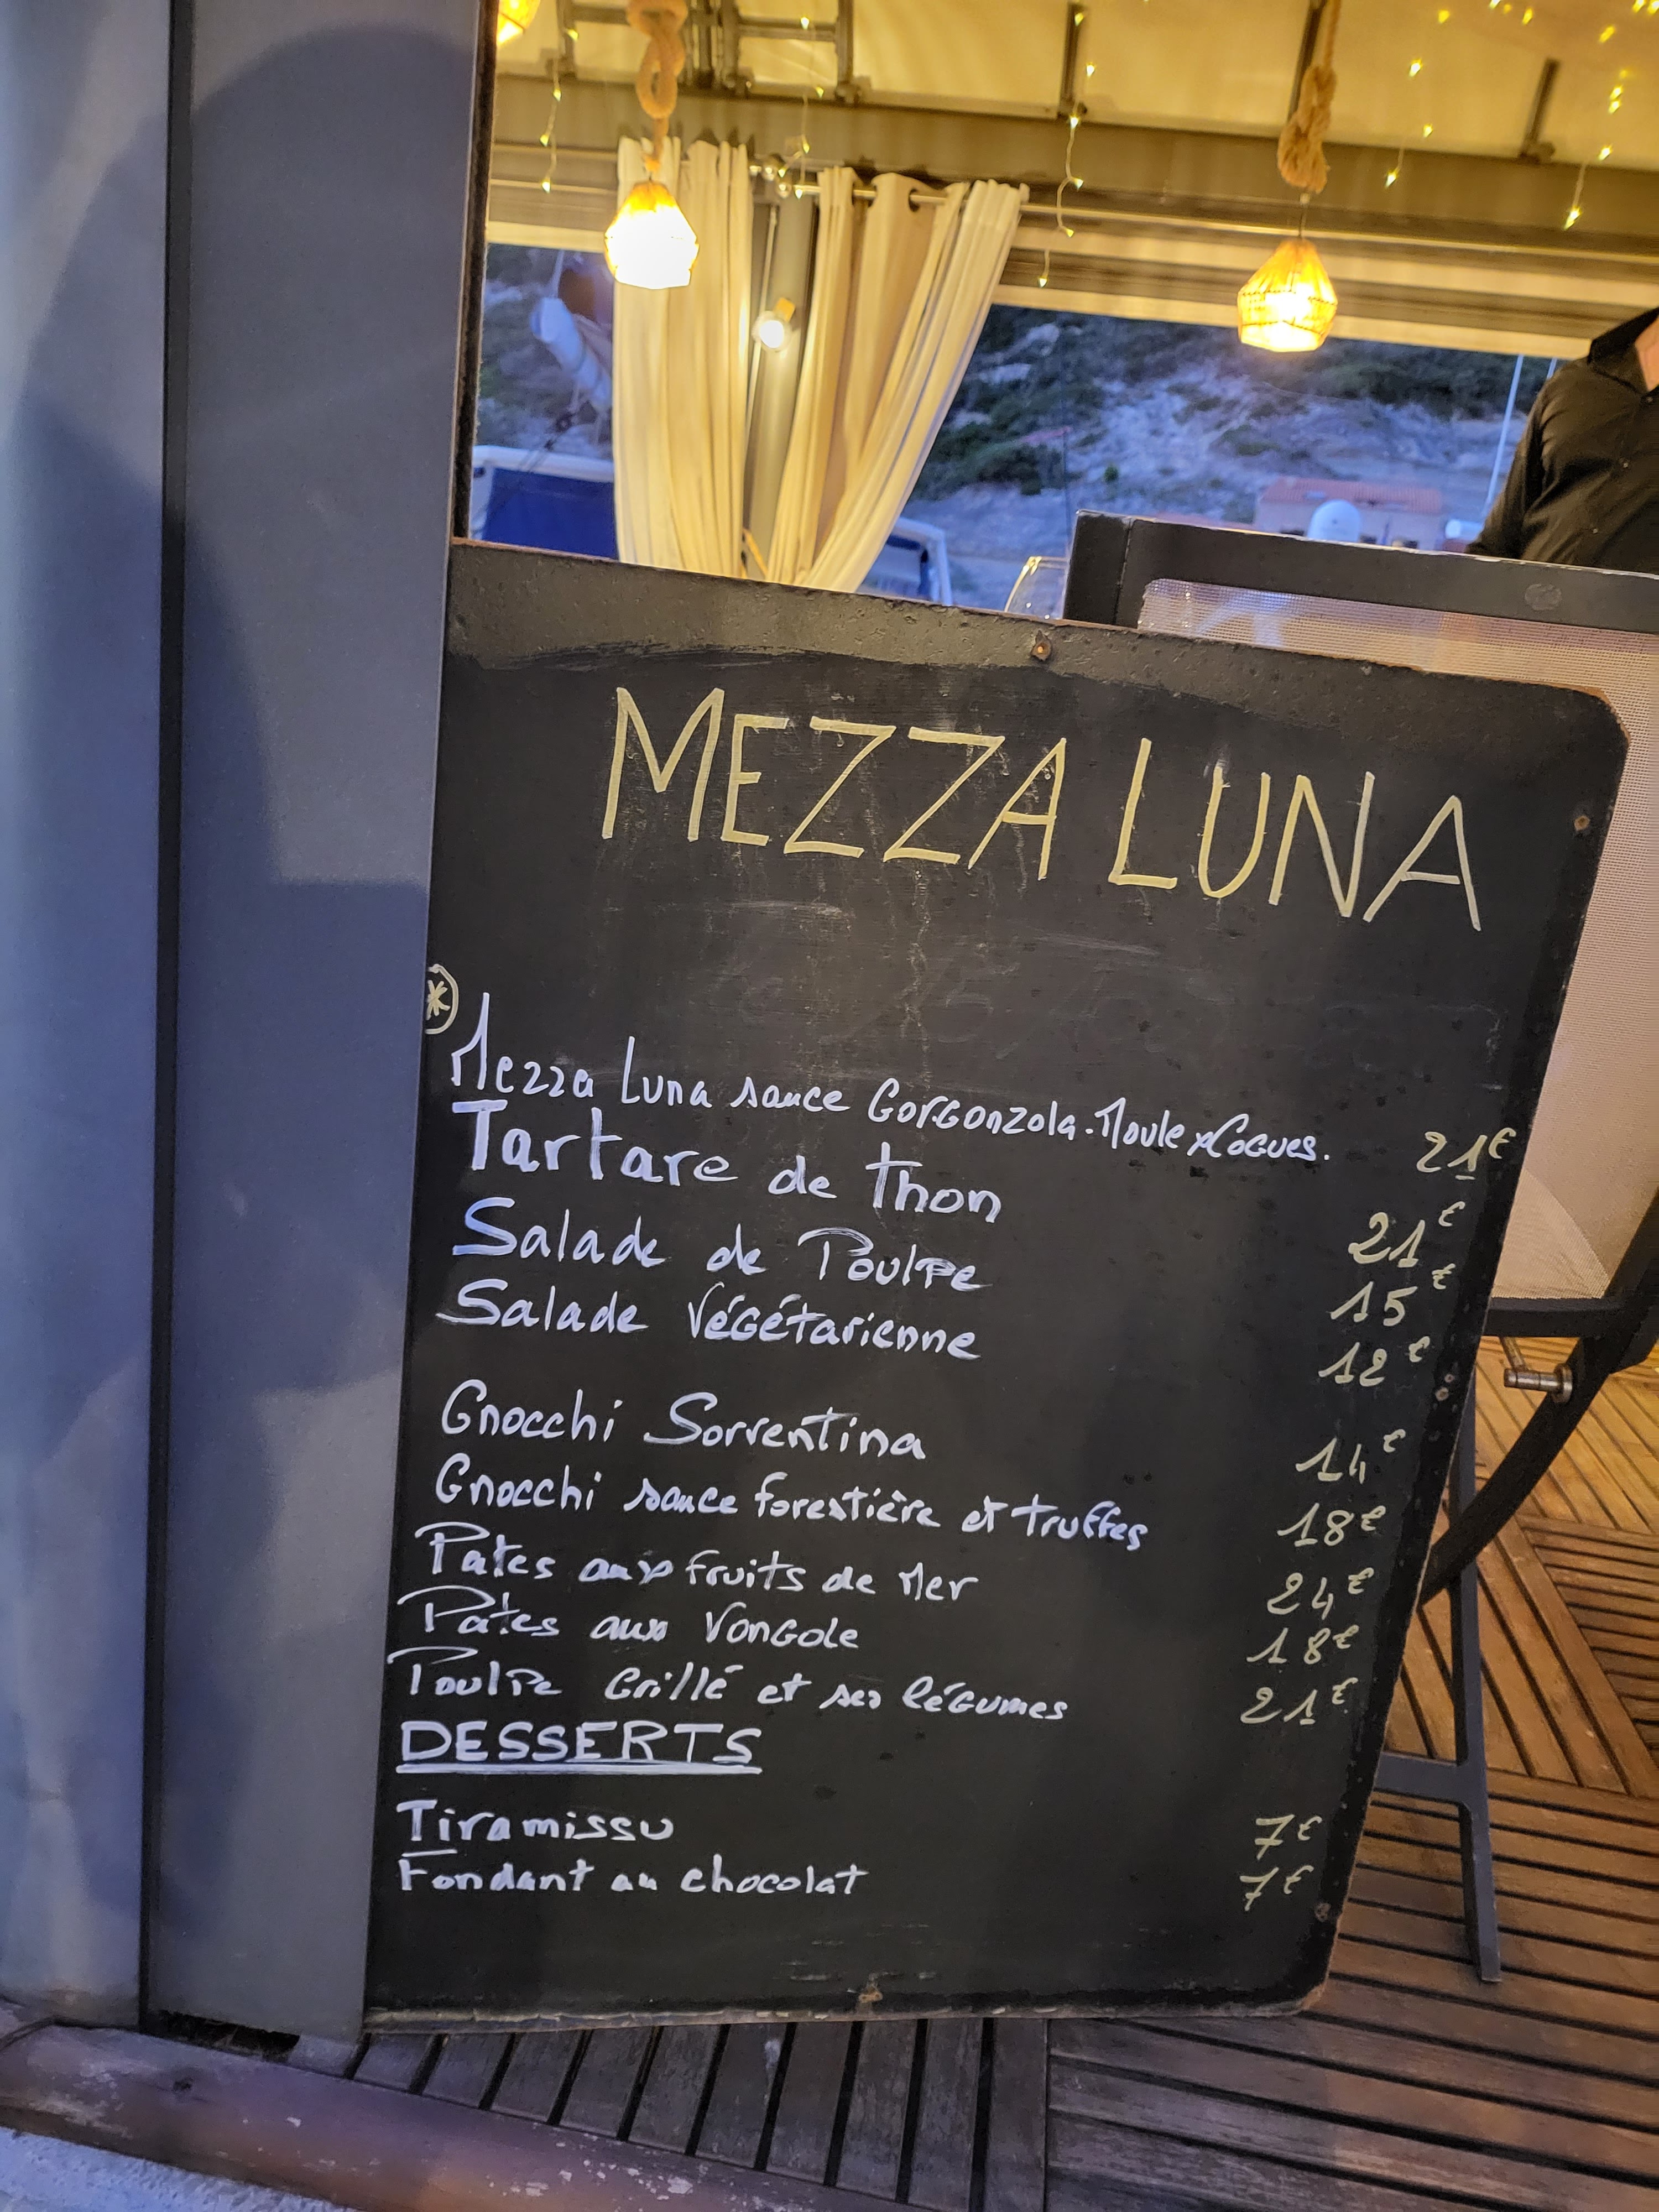 MEZZA LUNA
*
Mezza Luna sauce Gorgonzola. Moule x Coques. 21€
Tartare de thon 21€
Salade de Poulpe 15€
Salade Végétarienne 12€
Gnocchi Sorrentina 14€
Gnocchi sauce forestière et truffes 18€
Pates aux fruits de Mer 24€
Pates aux Vongole 18€
Poulpe Grillé et ses légumes 21€
DESSERTS
Tiramissu 7€
Fondant au chocolat 7€